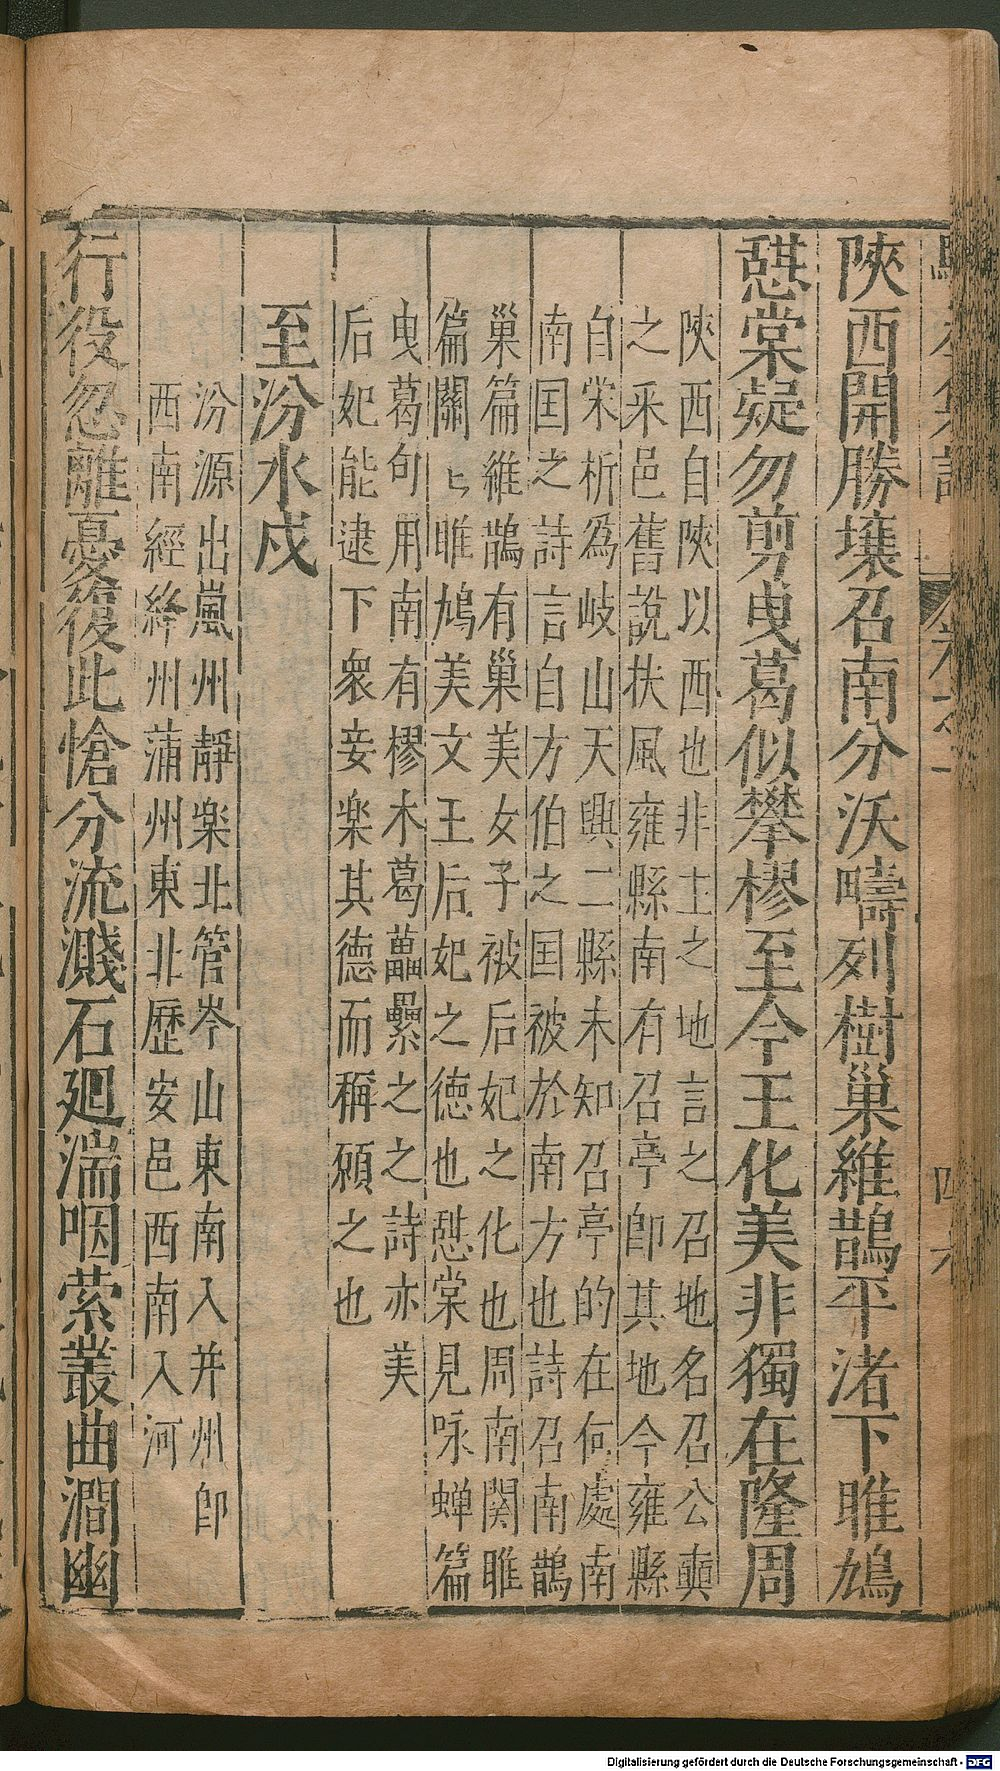 陝西開勝壤召南分沃疇列樹巢維鵲平渚下睢鳩
憇棠疑勿剪曳葛似攀樛至今王化美非獨在隆周
陝西自陝以西也非土之地言之召地名召公奭
之采邑舊說扶風雍縣南有召亭卽其地今雍縣
自栄析爲岐山天興二縣未知召亭的在何處南
南国之詩言自方伯之国被於南方也詩召南鵲
巢篇維鵲有巢美女子被后妃之化也周南関睢
篇關〻睢鳩美文王后妃之德也憇棠見咏蝉篇
曳葛句用南有樛木葛藟纍之之詩亦美
后妃能逮下衆妾楽其德而稱願之也
至汾水戍
汾源出嵐州靜楽北管岑山東南入并州卽
西南經絳州蒲州東北歷安邑西南入河
行役忽離憂復此愴分流濺石廻湍咽萦叢曲澗幽
四